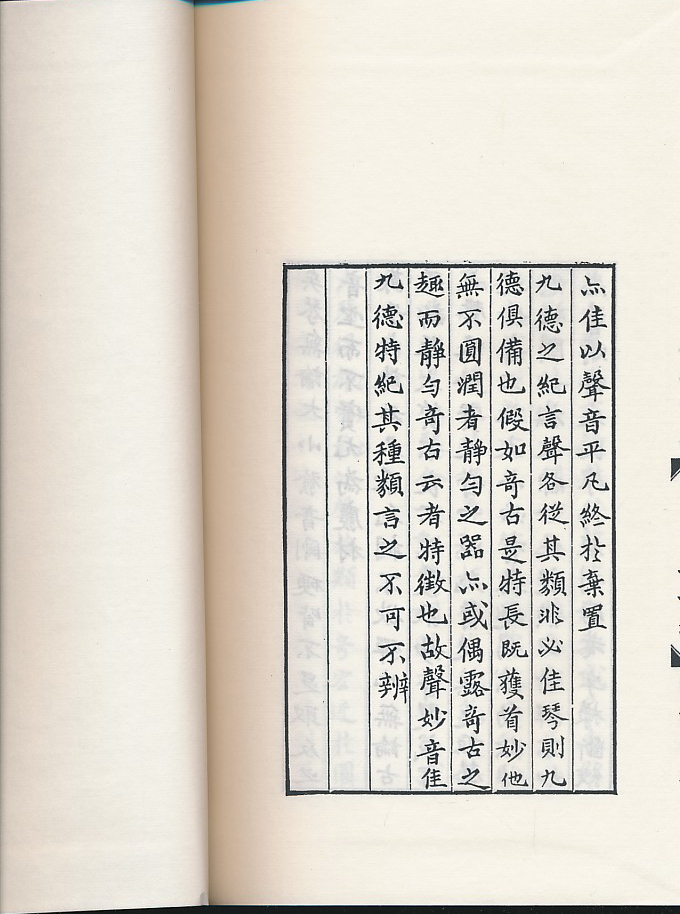 亦佳以聲音平凡終於棄置
九德之紀言聲各從其類非必佳琴則九
德俱備也假如奇古是特長既獲首妙他
無不圓潤者靜勻之器亦或偶露奇古之
趣而靜勻奇古云者特徵也故聲妙音佳
九德特紀其種類言之不可不辨